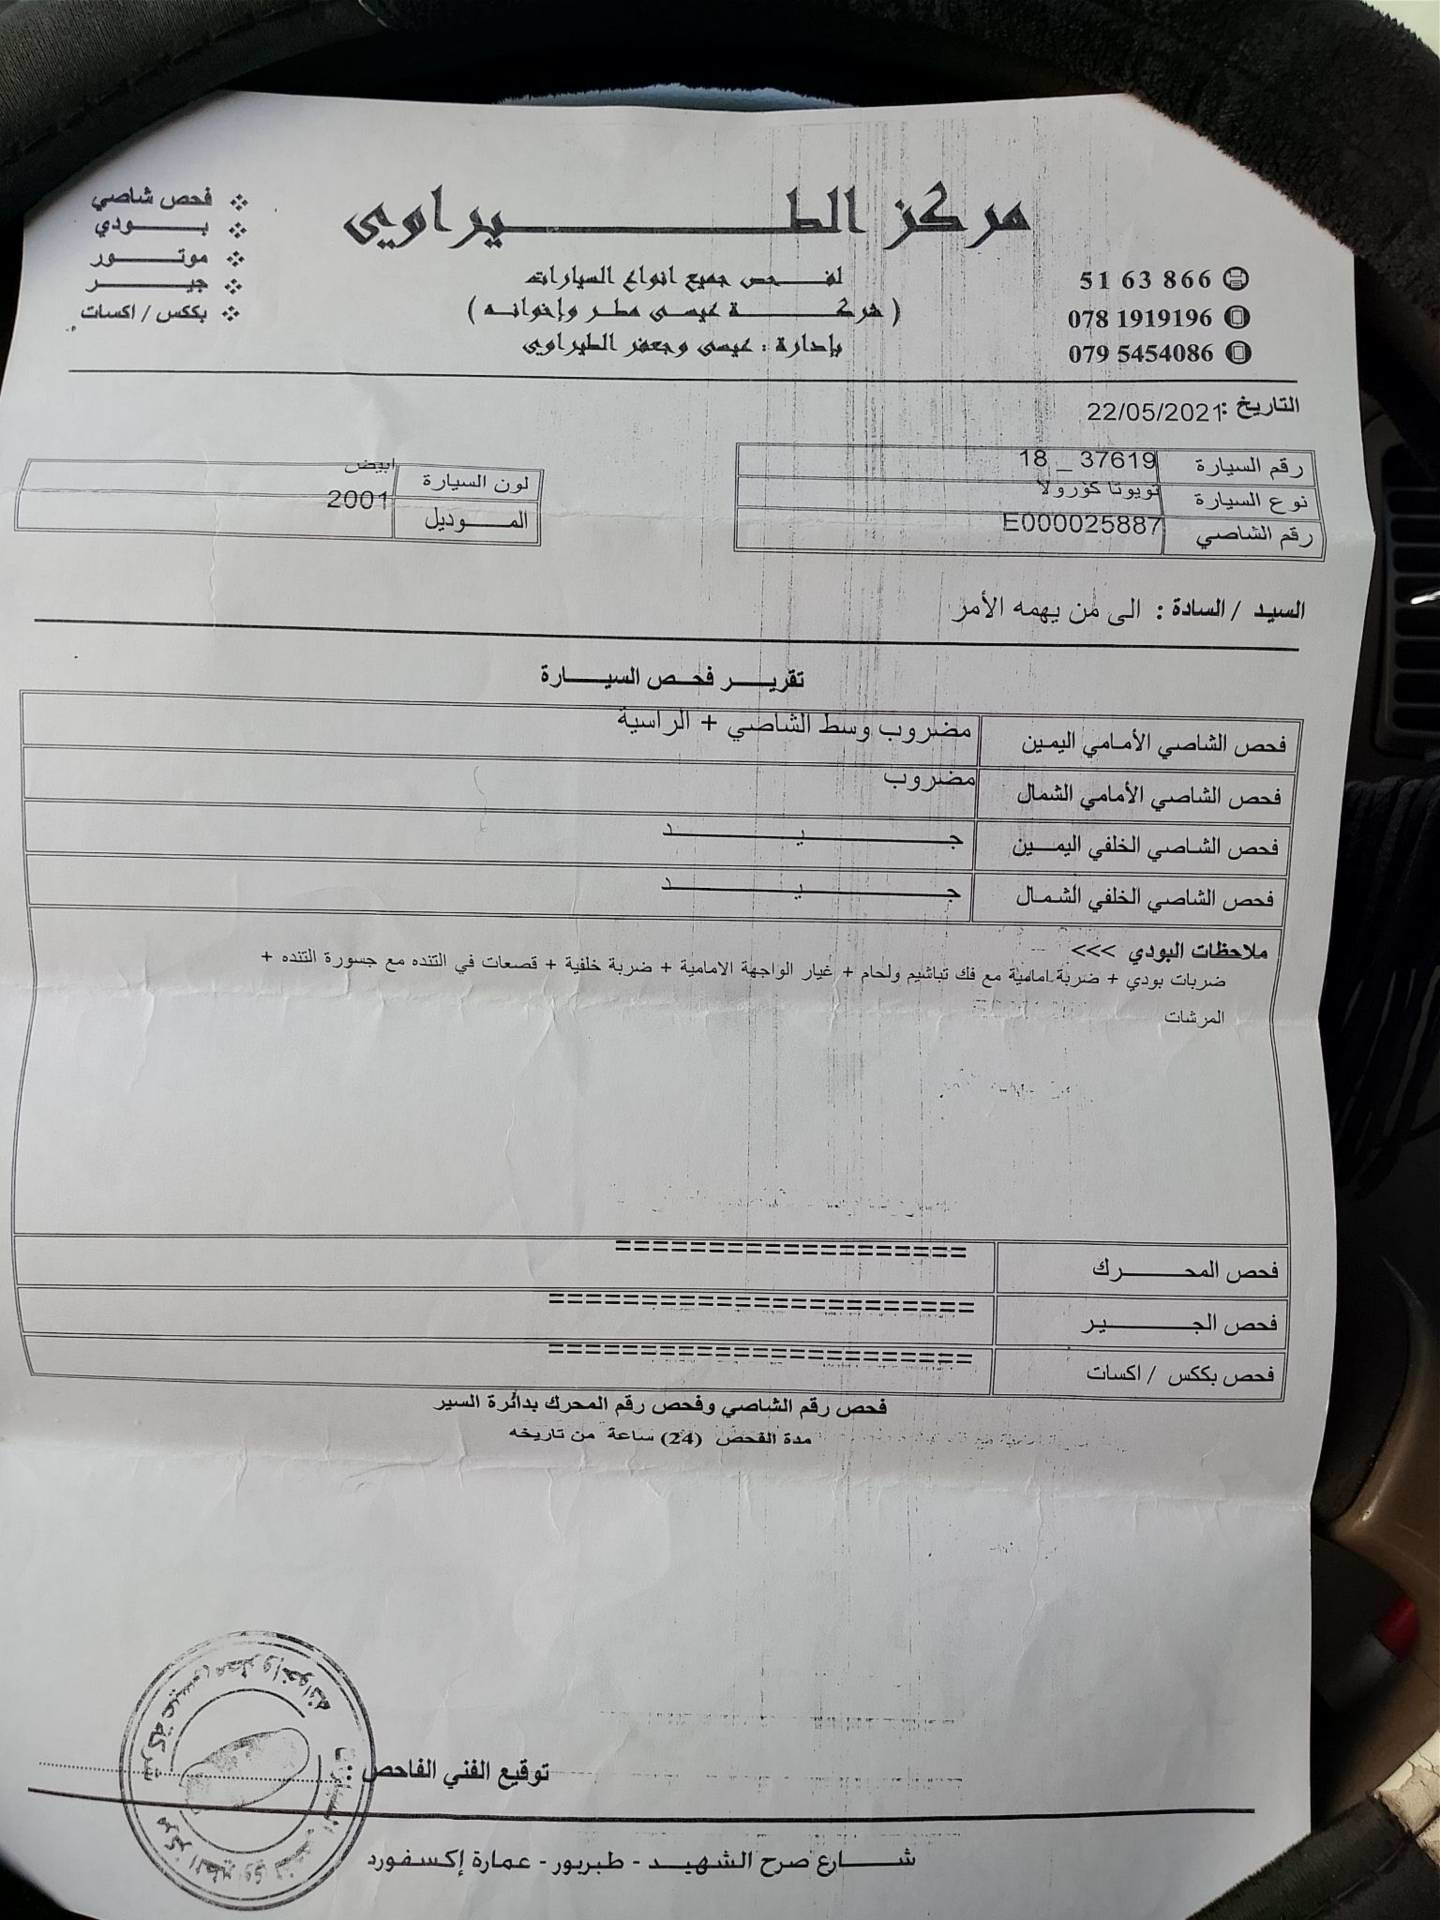 مركز الطيراوي
لفحص جميع انواع السيارات
( شركة عيسى مطر وإخوانه )
بإدارة : عيسى وجعفر الطيراوي
51 63 866
078 1919196
079 5454086
فحص شاصي
بودي
موتور
جير
بككس / اكسات
التاريخ : 22/05/2021
رقم السيارة 37619 _ 18
نوع السيارة تويوتا كورولا
رقم الشاصي E000025887
لون السيارة ابيض
الموديل 2001
السيد / السادة : الى من يهمه الأمر
تقرير فحص السيارة
فحص الشاصي الأمامي اليمين مضروب وسط الشاصي + الراسية
فحص الشاصي الأمامي الشمال مضروب
فحص الشاصي الخلفي اليمين جيد
فحص الشاصي الخلفي الشمال جيد
ملاحظات البودي >>>
ضربات بودي + ضربة امامية مع فك تباشيم ولحام + غيار الواجهة الامامية + ضربة خلفية + قصعات في التنده مع جسورة التنده +
المرشات
فحص المحرك ===================
فحص الجير =======================
فحص بككس / اكسات =======================
فحص رقم الشاصي وفحص رقم المحرك بدائرة السير
مدة الفحص (24) ساعة من تاريخه
توقيع الفني الفاحص
شركة عيسى مطر وإخوانه
شارع صرح الشهيد - طبربور - عمارة إكسفورد